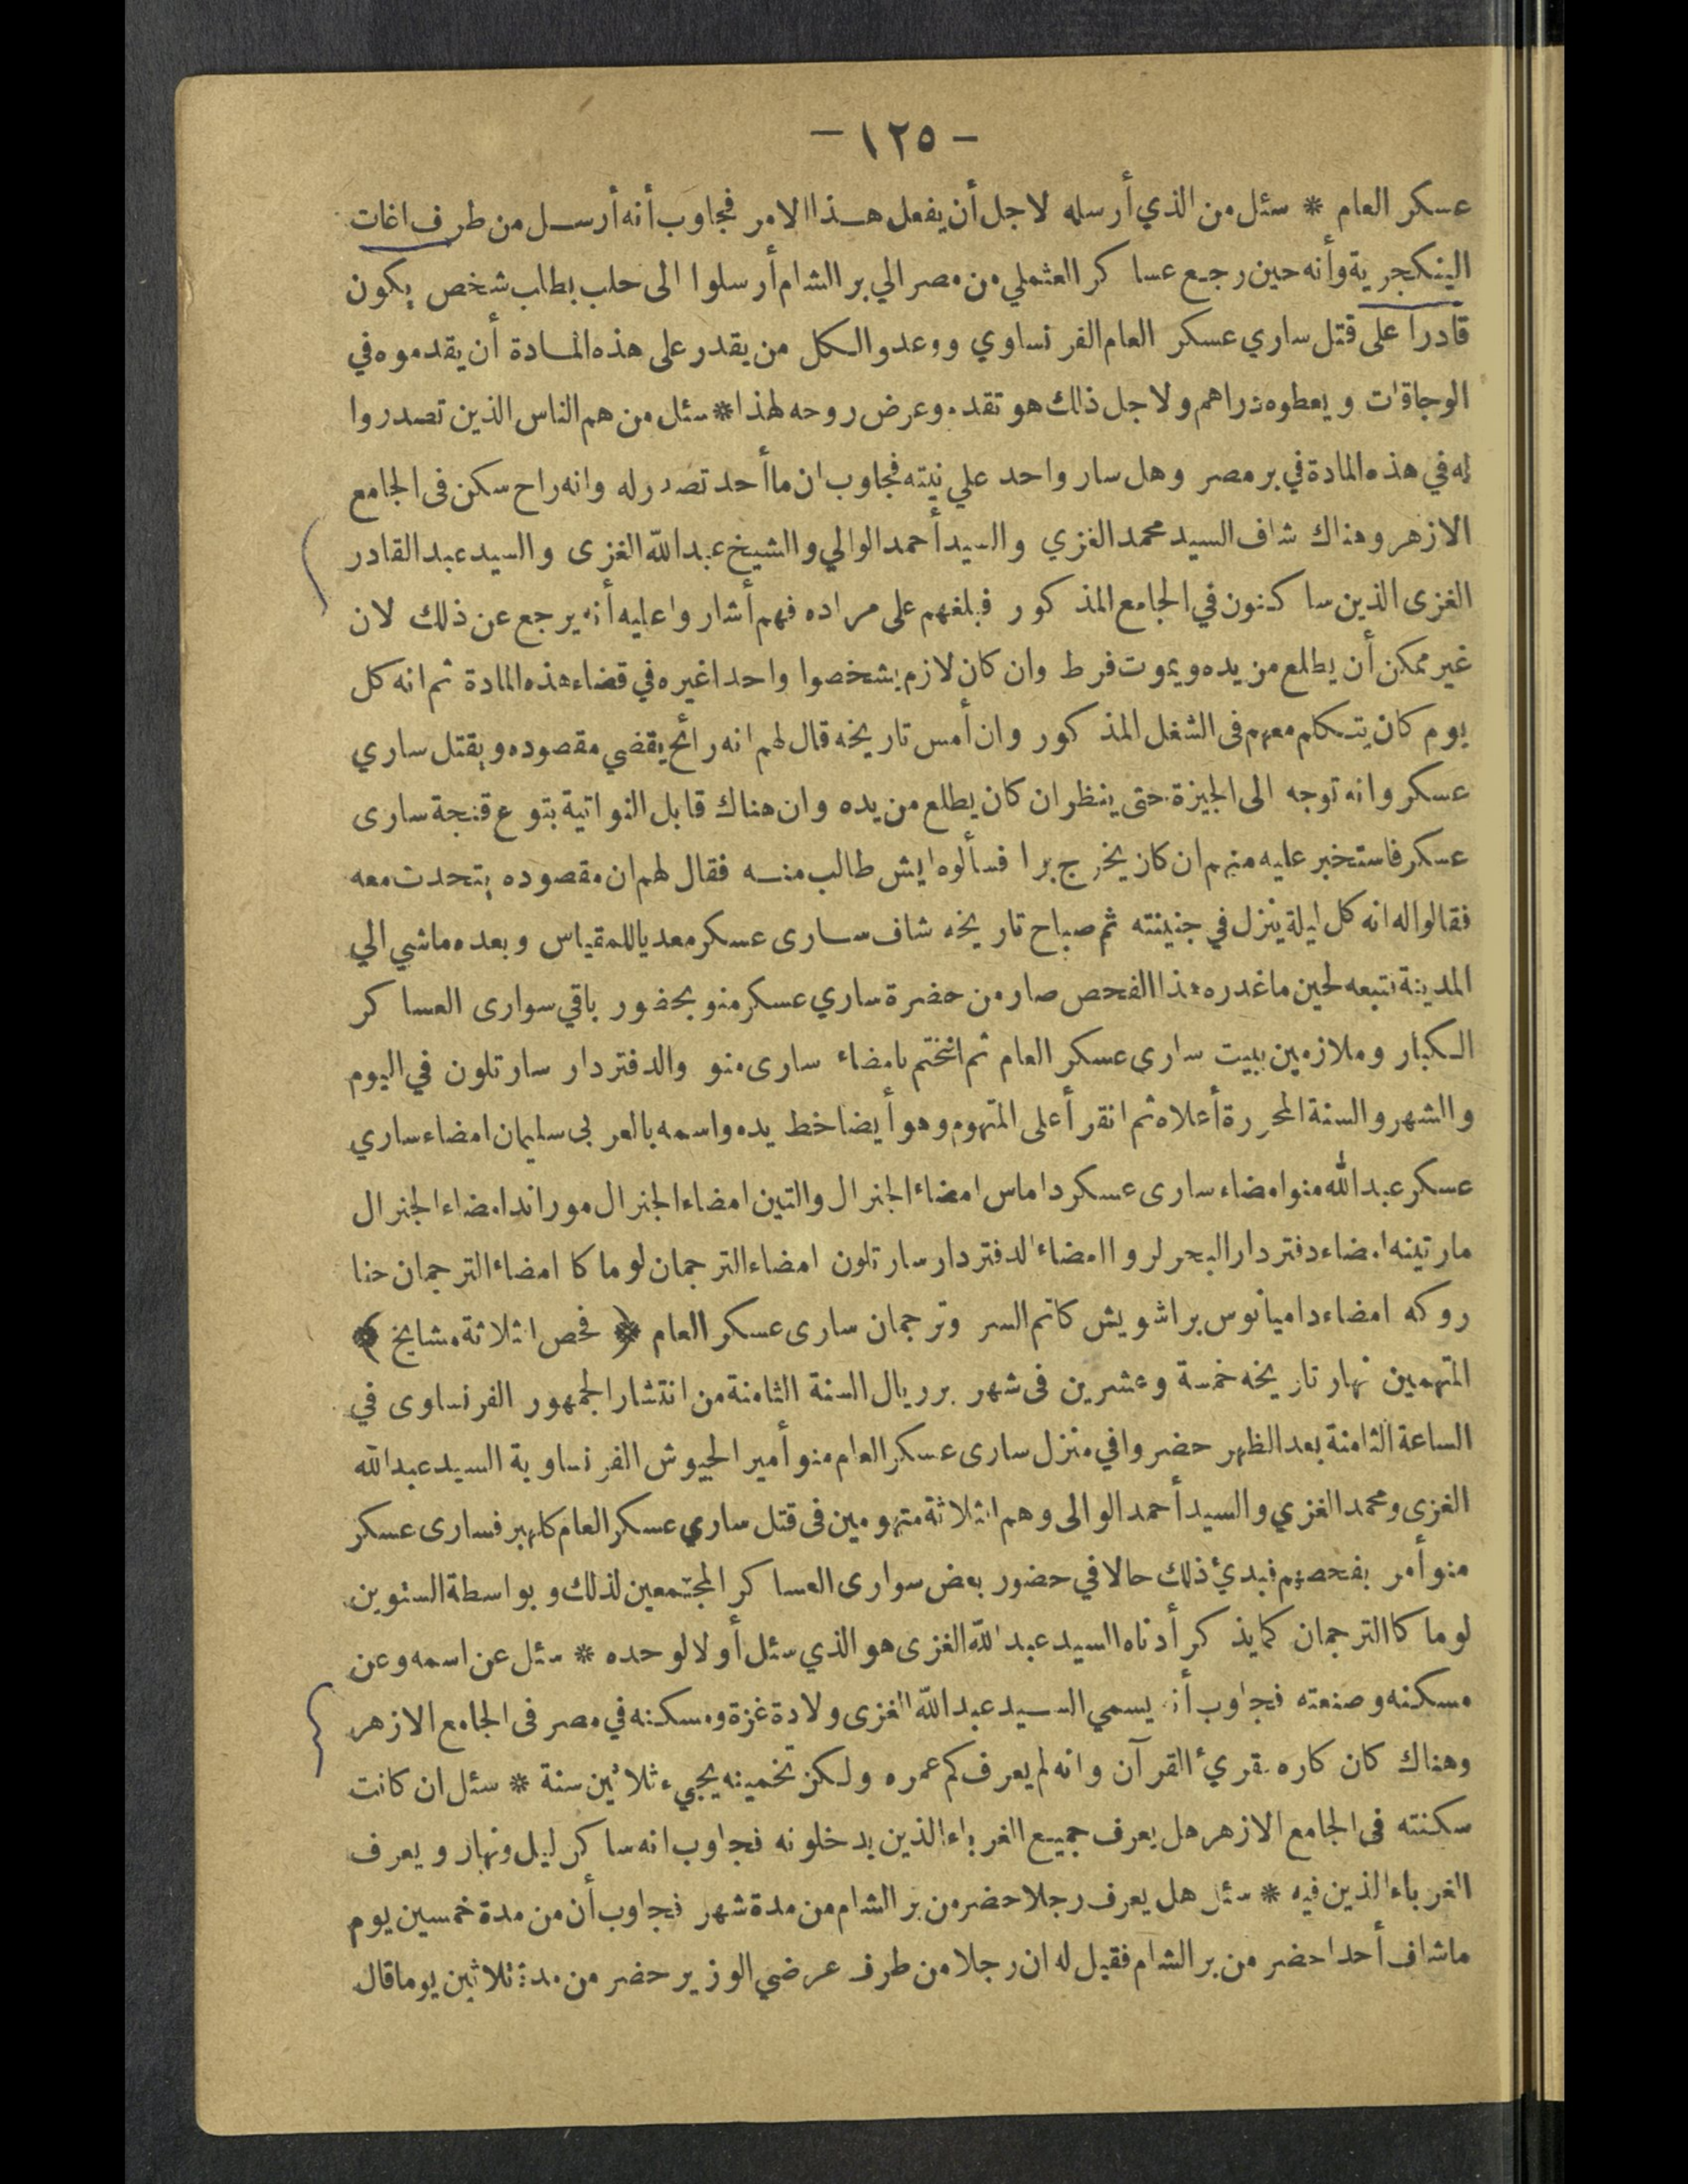 - ١٢٥ -
عسكر العام * سئل من الذي أرسله لاجل أن يفعل هذا الامر فجاوب أنه أرسل من طرف اغات
الينكجرية وأنه حين رجع عساكر العثملي من مصر الي بر الشام أرسلوا الى حلب بطلب شخص يكون
قادرا على قتل ساري عسكر العام الفرنساوي ووعدوا لكل من يقدر على هذه المادة أن يقدموه في
الوجاقات ويعطوه دراهم ولاجل ذلك هو تقدم وعرض روحه لهذا * سئل من هم الناس الذين تصدروا
له في هذه المادة في بر مصر وهل سار واحد علي نيته فجاوب ان ما أحد تصدر له وانه راح سكن فى الجامع
الازهر وهناك شاف السيد محمد الغزي والسيد أحمد الوالي والشيخ عبد الله الغزى والسيد عبد القادر
الغزى الذين ساكنون في الجامع المذكور فبلغهم على مراده فهم أشاروا عليه أنه يرجع عن ذلك لان
غير ممكن أن يطلع من يده ويموت فرط وان كان لازم يشخصوا واحدا غيره في قضاء هذه المادة ثم انه كل
يوم كان يتكلم معهم فى الشغل المذكور وان أمس تاريخه قال لهم انه رائح يقضي مقصوده ويقتل ساري
عسكر وانه توجه الى الجيزة حتى ينظر ان كان يطلع من يده وان هناك قابل النواتية بتوع قنجة سارى
عسكر فاستخبر عليه منهم ان كان يخرج برا فسألوه ايش طالب منه فقال لهم ان مقصوده يتحدث معه
فقالوا له انه كل ليلة ينزل في جنينته ثم صباح تاريخه شاف سارى عسكر معديا للمقياس وبعده ماشي الي
المدينة فتبعه لحين ما غدره هذا الفحص صار من حضرة ساري عسكر منو بحضور باقي سوارى العساكر
الكبار وملازمين ببيت سارى عسكر العام ثم انختم بامضاء سارى منو والدفتردار سارتلون في اليوم
والشهر والسنة المحررة أعلاه ثم انقرأ على المتهوم وهو أيضا خط يده واسمه بالعربى سليمان امضاء ساري
عسكر عبد الله منو امضاء سارى عسكر داماس امضاء الجنرال والتين امضاء الجنرال موراند امضاء الجنرال
مارتينه امضاء دفتردار البحر لروا امضاء الدفتردار سارتلون امضاء الترجمان لوماكا امضاء الترجمان حنا
روكه امضاء داميانوس براشويش كاتم السر وترجمان سارى عسكر العام ﴿ فحص الثلاثة مشايخ ﴾
المتهمين نهار تاريخه خمسة وعشرين فى شهر برريال السنة الثامنة من انتشار الجمهور الفرنساوى في
الساعة الثامنة بعد الظهر حضروا في منزل سارى عسكر العام منو أمير الجيوش الفرنساوية السيد عبد الله
الغزى ومحمد الغزي والسيد أحمد الوالى وهم الثلاثة متهومين فى قتل ساري عسكر العام كلهبر فسارى عسكر
منو أمر بفحصهم فبدئ ذلك حالا في حضور بعض سوارى العساكر المجتمعين لذلك وبواسطة الستوين
لوماكا الترجمان كما يذكر أدناه السيد عبد الله الغزى هو الذي سئل أولا لوحده * سئل عن اسمه وعن
مسكنه وصنعته فجاوب أنه يسمي السيد عبد الله الغزى ولادة غزة ومسكنه في مصر فى الجامع الازهر
وهناك كان كاره يقرئ القرآن وانه لم يعرف كم عمره ولكن تخمينه يجيء ثلاثين سنة * سئل ان كانت
سكنته فى الجامع الازهر هل يعرف جميع الغرباء الذين يدخلونه فجاوب انه ساكن ليل ونهار ويعرف
الغرباء الذين فيه * سئل هل يعرف رجلا حضر من بر الشام من مدة شهر فجاوب أن من مدة خمسين يوم
ما شاف أحدا حضر من بر الشام فقيل له ان رجلا من طرف عرضي الوزير حضر من مدة ثلاثين يوما قال